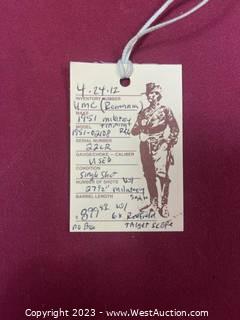 4-24-12
INVENTORY NUMBER
UMC (Remington
MAKE
1951 military
MODEL training
1951-02108
SERIAL NUMBER
22LR
GAUGE/CHOKE - CALIBER
USED
CONDITION
Single Shot
NUMBER OF SHOTS
27½" military
BARREL LENGTH
899 w/
6x Redfield
no Box Target Scope
Copyright © 2023 - www.WestAuction.com